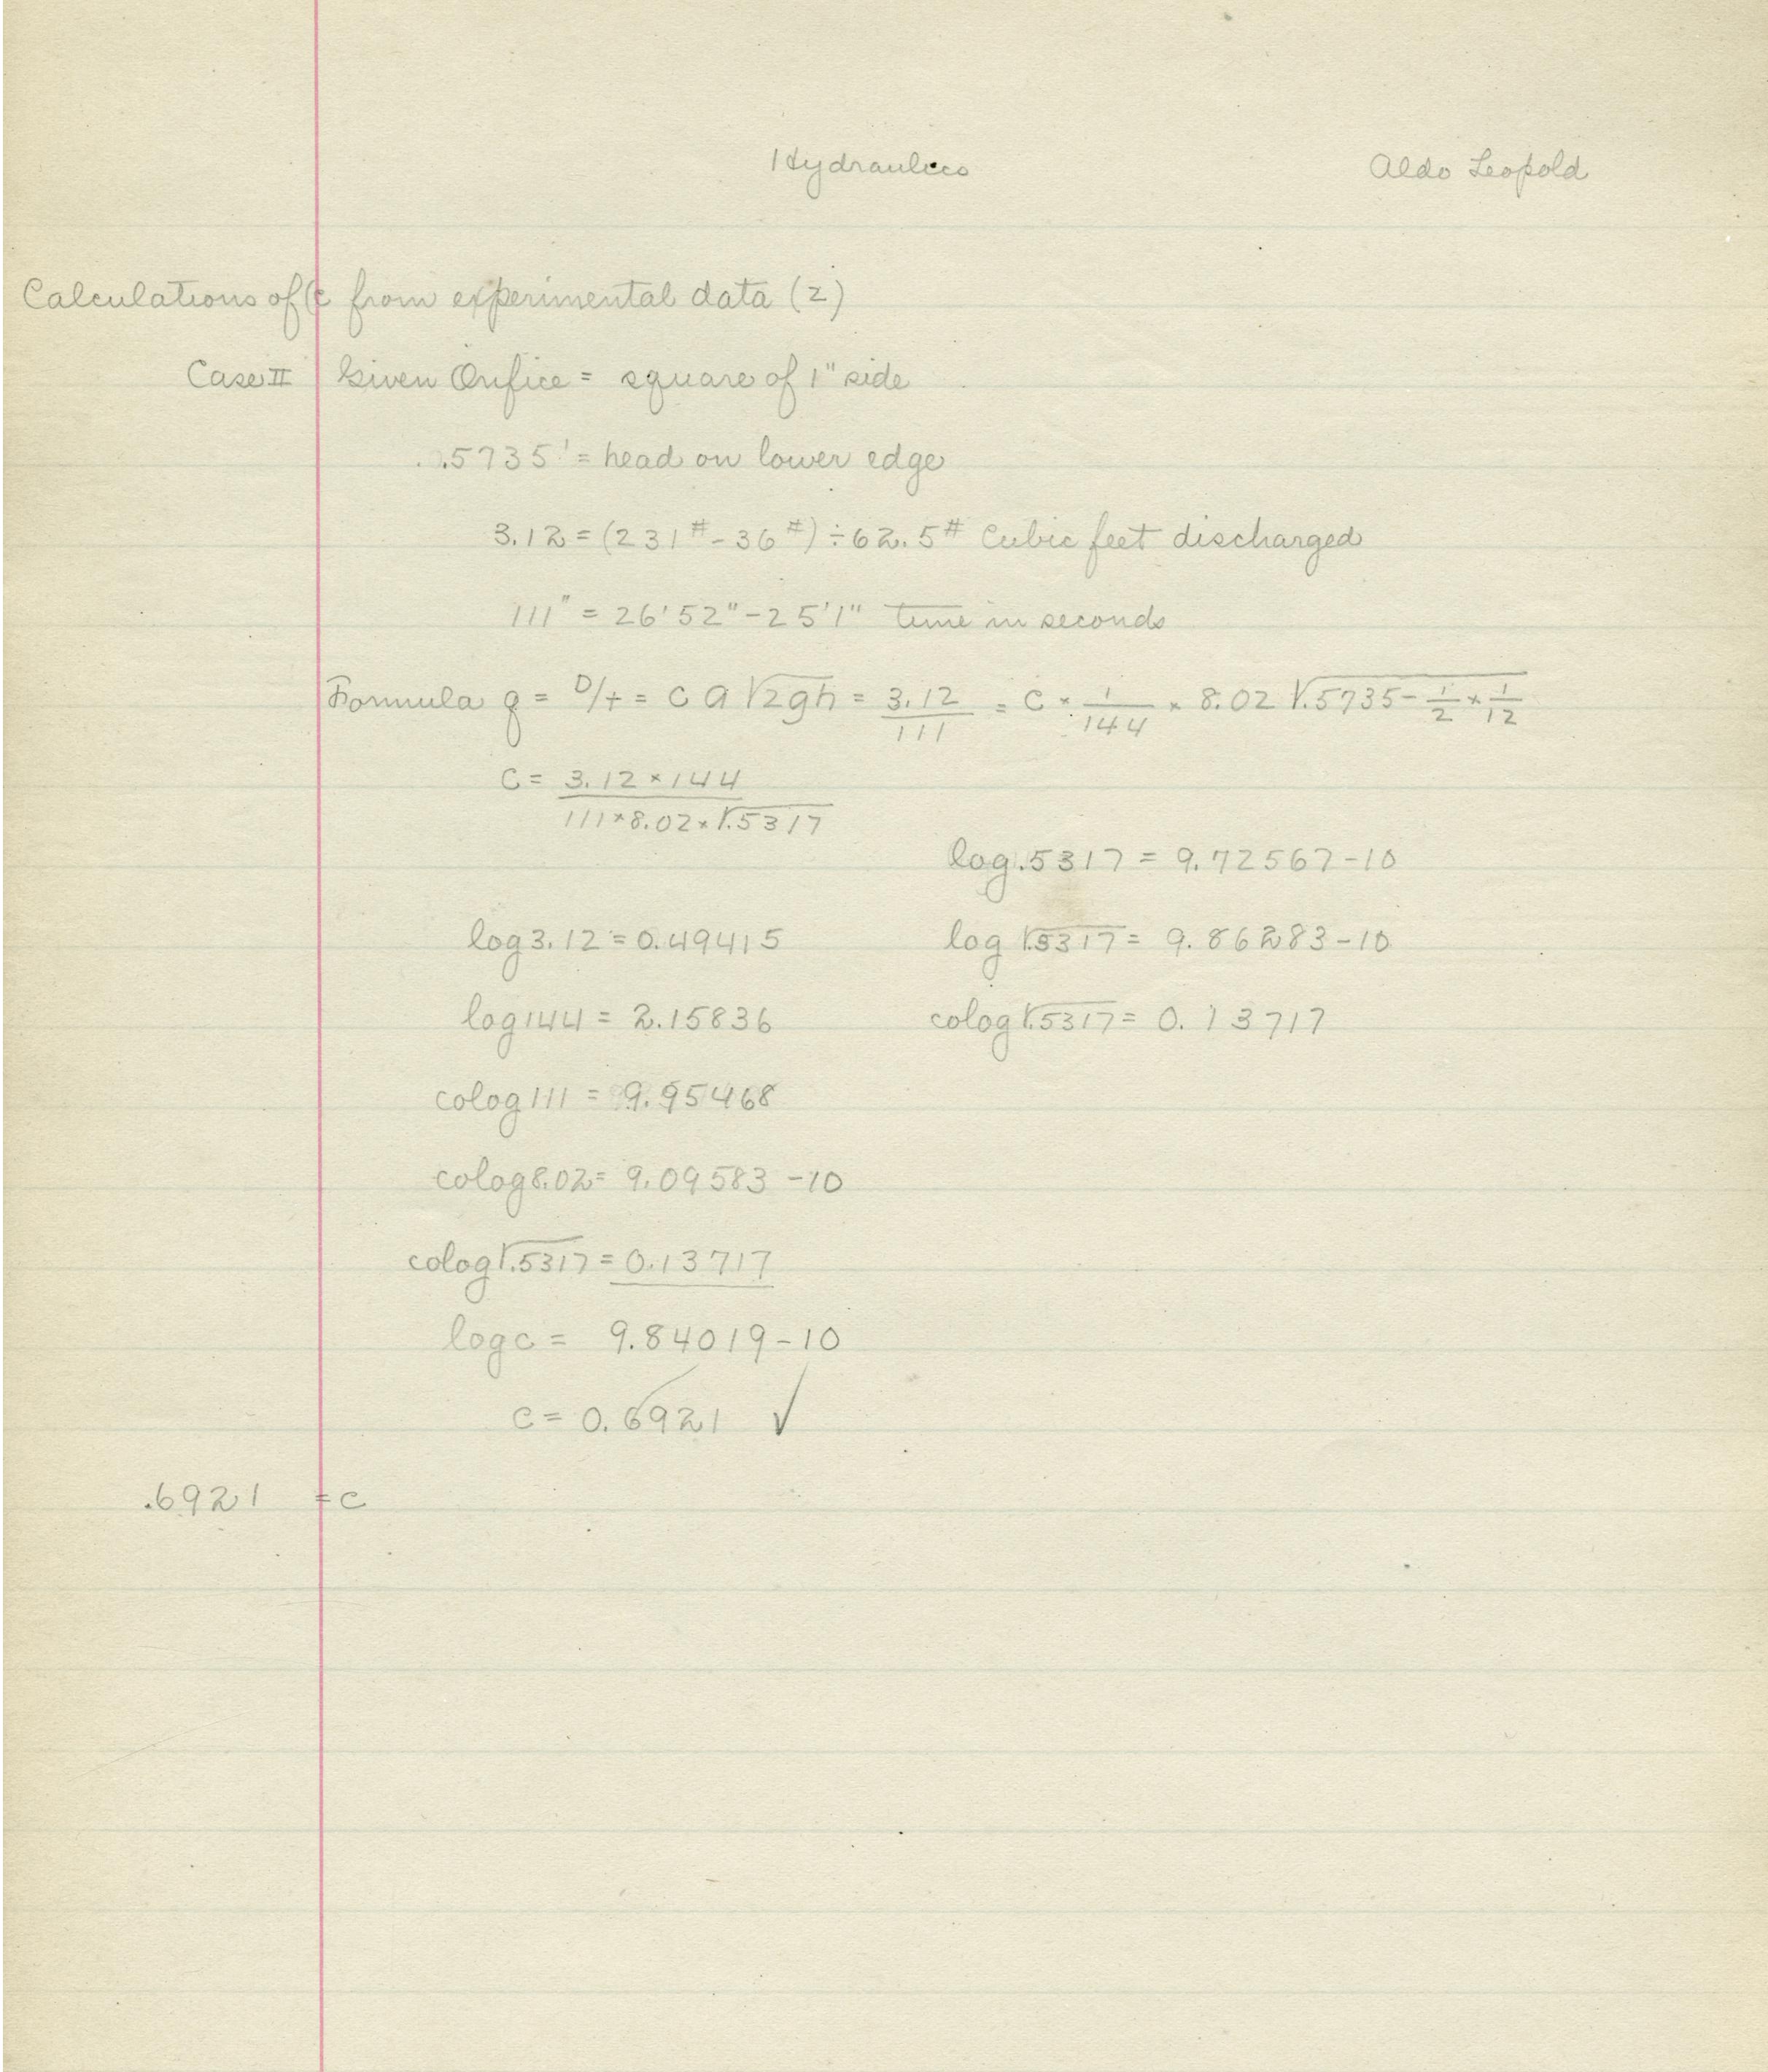 Hydraulics
Aldo Leopold
Calculations of c from experimental data (2)
Case II Given Orifice = square of 1" side
.5735' = head on lower edge
3.12 = (231# - 36#) ÷ 62.5# Cubic feet discharged
111" = 26'52" - 25'1" time in seconds
Formula q = D/t = c a √2gh = 3.12/111 = c × 1/144 × 8.02 √.5735 - 1/2 × 1/12
C = 3.12 × 144 / 111 × 8.02 × √.5317
log .5317 = 9.72567-10
log 3.12 = 0.49415
log √.5317 = 9.86283-10
log 144 = 2.15836
colog √.5317 = 0.13717
colog 111 = 9.95468
colog 8.02 = 9.09583 -10
colog √.5317 = 0.13717
log c = 9.84019-10
c = 0.6921 ✓
.6921 = c